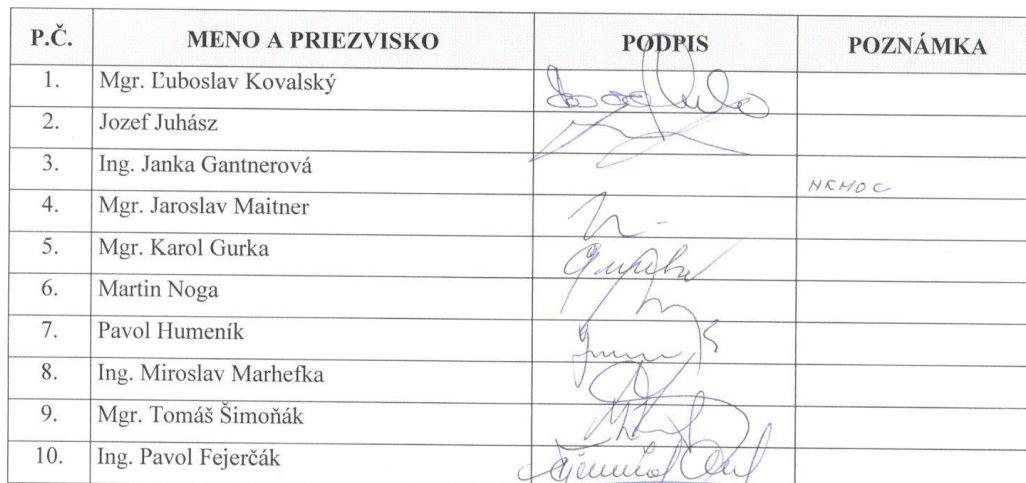 P.Č. MENO A PRIEZVISKO PODPIS POZNÁMKA
1. Mgr. Ľuboslav Kovalský
2. Jozef Juhász
3. Ing. Janka Gantnerová NEMOC
4. Mgr. Jaroslav Maitner
5. Mgr. Karol Gurka
6. Martin Noga
7. Pavol Humeník
8. Ing. Miroslav Marhefka
9. Mgr. Tomáš Šimoňák
10. Ing. Pavol Fejerčák